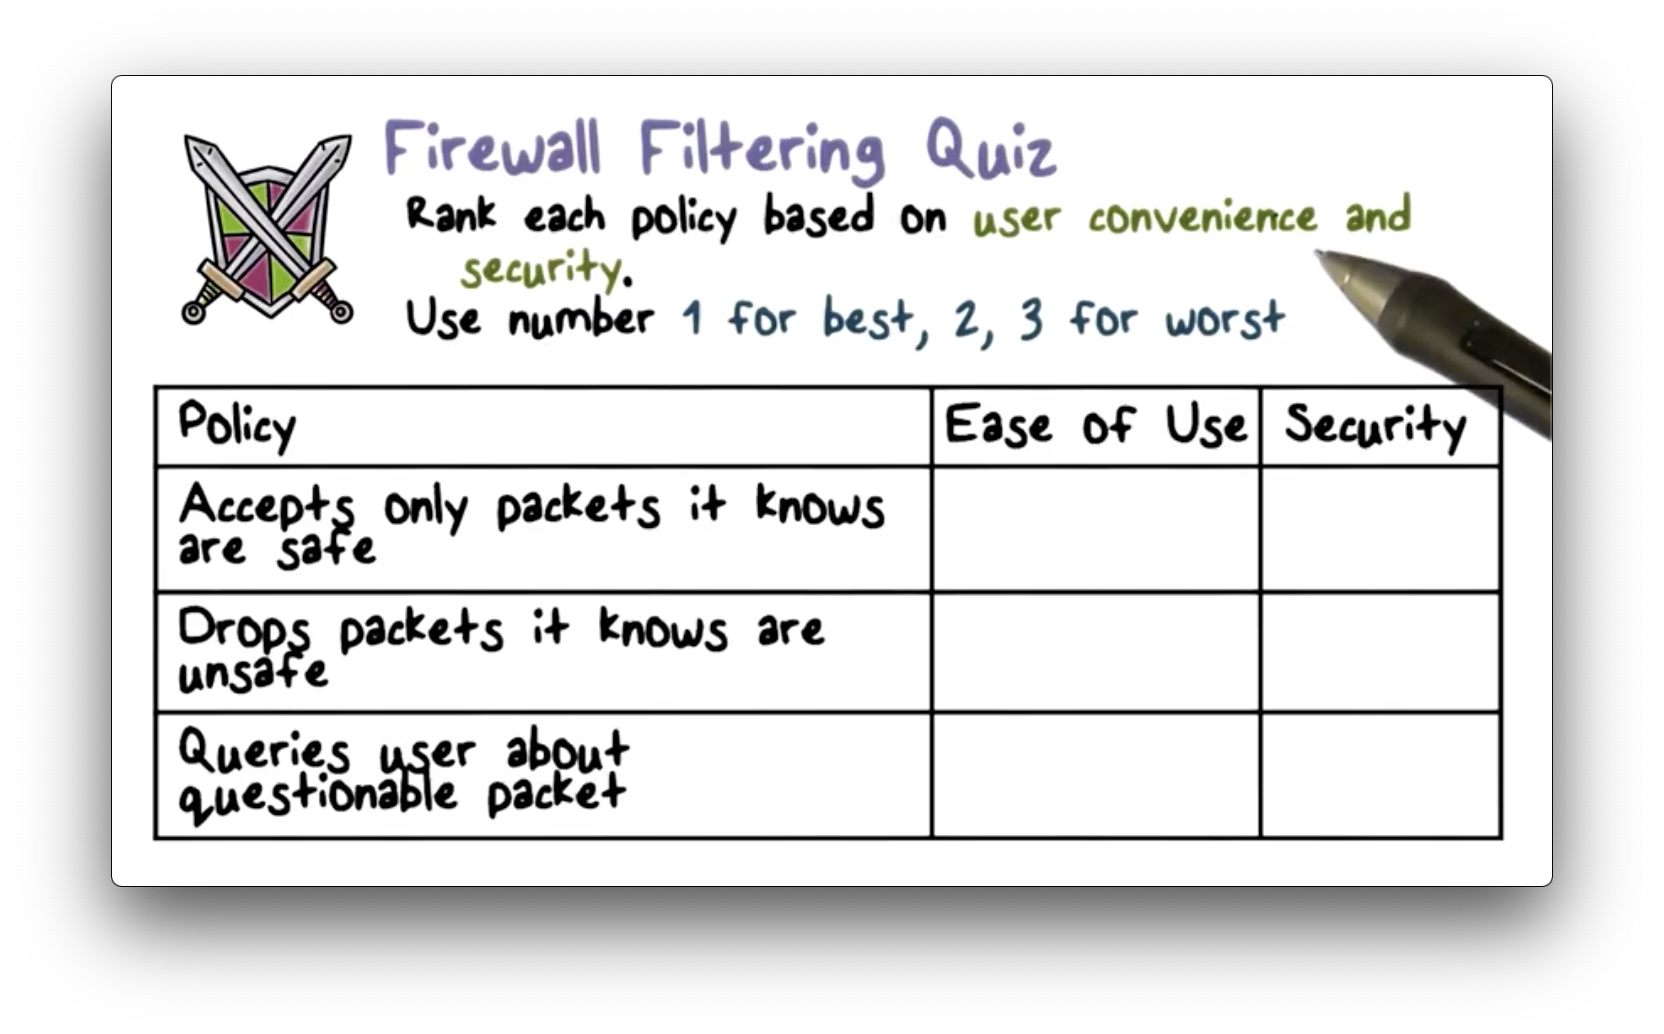 Firewall Filtering Quiz
Rank each policy based on user convenience and
security.
Use number 1 for best, 2, 3 for worst
Policy
Ease of Use
Security
Accepts only packets it knows
are safe
Drops packets it knows are
unsafe
Queries user about
questionable packet